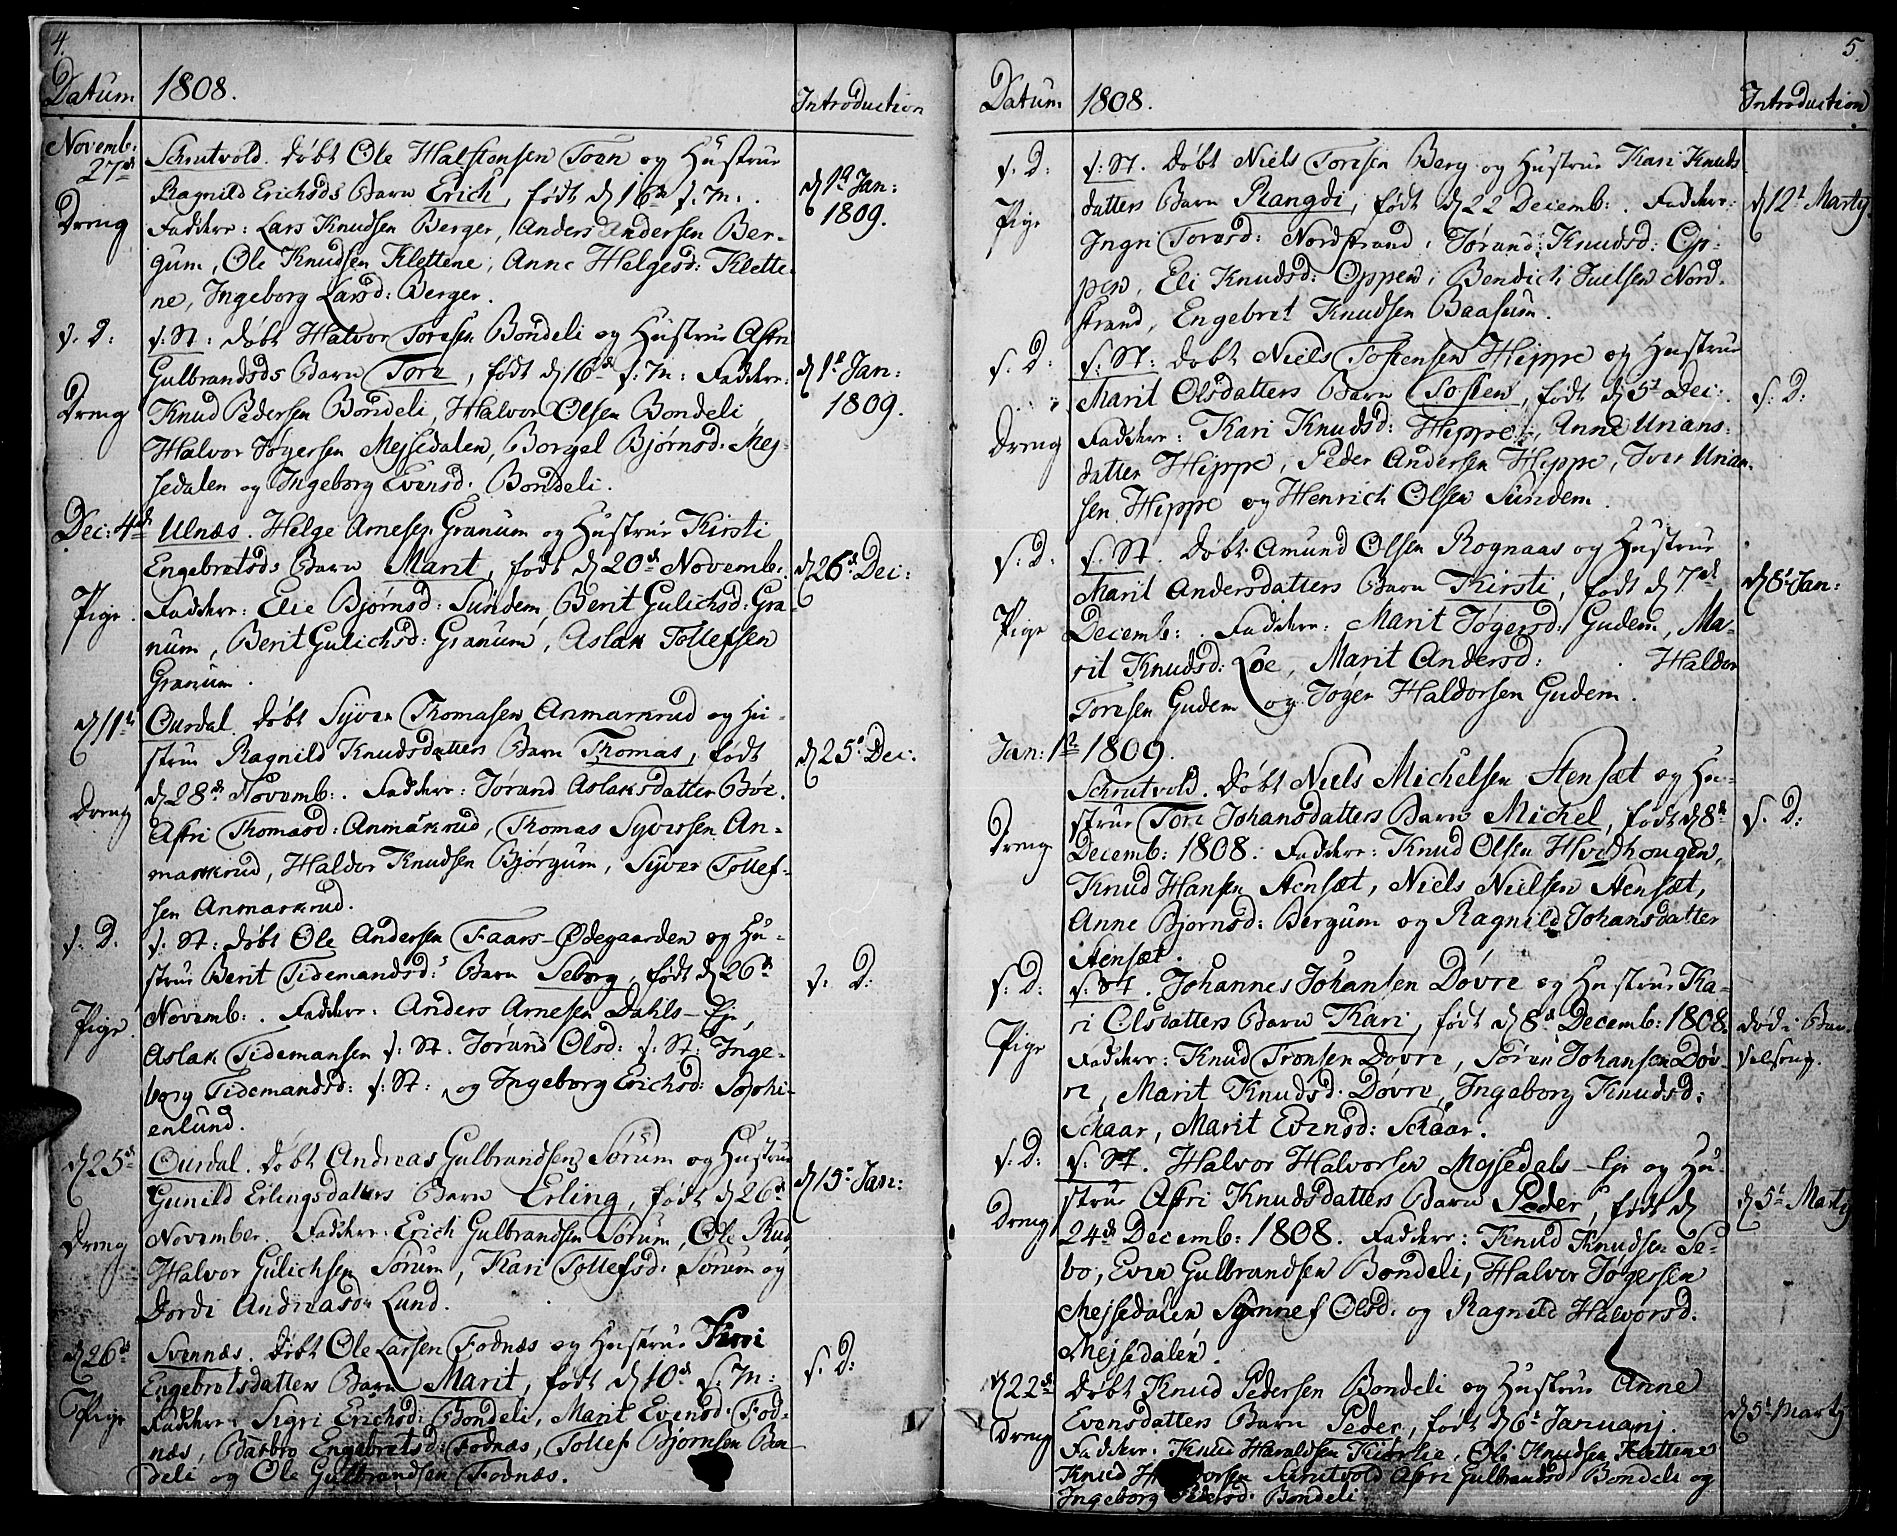 4.
Datum 1808. Introduction
Novemb: 27de Schrutvold. døbt Ole Halstensen Toen og Hustrue
Ragnild Erichsds Barn Erich, født d 16de s. M. d 1ste Jan: 1809.
Dreng Faddere: Lars Knudsen Berger, Anders Andersen Ber-
gum, Ole Knudsen Klettene, Anne Helgesd: Klette-
ne, Ingeborg Larsd: Berger.
s. D: s: St: døbt Halvor Toresen Bondeli og Hustrue Astri
Gulbrandsds Barn Tore, født d 16de s: M: Faddere: d 1ste Jan: 1809.
Dreng Knud Pedersen Bondeli, Halvor Olsen Bondeli
Halvor Jøgersen Mejsedalen, Borgel Bjørnsd: Mej-
sedalen og Ingeborg Evensd: Bondeli.
Dec: 4de Ulnæs. Helge Arnesen Granum og Hustrue Kirsti
Engebretsds Barn Marit, født d 20de Novemb: d 26de Dec:
Pige. Faddere: Elie Bjørnsd: Sundem, Berit Gulichsd: Gra-
num, Berit Gulichsd: Granum, Aslak Tollefsen
Granum.
d 11te Ourdal. døbt Syver Thomasen Anmarkrud og Hu-
strue Ragnild Knudsdatters Barn Thomas, født d 25de Dec:
Dreng d 28de Novemb: Faddere: Jørand Aslaksdatter Bøe.
Astri Thomasd: Anmarkrud, Thomas Syversen An-
markrud, Haldor Knudsen Bjørgum, Syver Tollef-
sen Anmarkrud.
s. D. s. St: døbt Ole Andersen Faars-Ødegaarden og Hu-
strue Berit Tidemandsd:s Barn Seborg, født d 26de s. D:
Pige. Novemb: Faddere: Anders Arnesen Dahls-Eje,
Aslak Tidemansen s: St. Jørand Olsd: s: St: Inge-
borg Tidemandsd: s: St: og Ingeborg Erichsd: Sophi-
enlund.
d 25de Ourdal. døbt Andreas Gulbrandsen Sørum og Hustrue
Gunild Erlingsdatters Barn Erling, født d 26de d 15de Jan:
Dreng November. Faddere: Erich Gulbrandsen Sørum, Ole Rud,
Halvor Gulichsen Sørum, Kari Tollefsd: Sørum og
Dordi Andreasd: Lund.
d 26de Svennæs. døbt Ole Larsen Fodnæs og Hustrue Kari
Engebretsdatters Barn Marit, født d 10de s: M: s. D:
Pige Faddere: Sigri Erichsd: Bondeli, Marit Evensd: Fod-
næs, Barbro Engebretsd: Fodnæs, Tollef Bjørnsen Bon-
deli og Ole Gulbrandsen Fodnæs.
5.
Datum 1808. Introduction
s. D: s: St. døbt Niels Toresen Berg og Hustrue Kari Knuds
Pige datters Barn Rangdi, født d 22 Decemb: Faddere: d 12te Martij
Ingri Toresd: Nordstrand, Jørand Knudsd: Op-
pen, Eli Knudsd: Oppen, Bendich Juelsen Nord-
strand, Engebret Knudsen Baasum.
s. D: s: St: døbt Niels Tostensen Hippe og Hustrue
Marit Olsdatters Barn Tosten, født d 5te Dec: s. D:
Dreng Faddere: Kari Knudsd: Hippe, Anne Urians-
datter Hippe, Peder Andersen Hippe, Iver Urian-
sen Hippe og Henrich Olsen Sundem.
s. D: s. St. døbt Amund Olsen Rognaas og Hustrue
Marit Andersdatters Barn Kirsti, født d 7de d 8de Jan:
Pige Decemb: Faddere: Marit Jøgersd: Gudem, Ma-
rit Knudsd: Loe, Marit Andersd: Haldor
Toresen Gudem og Jøger Haldorsen Gudem.
Jan: 1ste 1809.
Schrutvold. døbt Niels Michelsen Stensæt og Hu-
Dreng strue Tore Johansdatters Barn Michel, født d 8de s. D:
Decemb: 1808. Faddere: Knud Olsen Hvidhougen,
Knud Hansen Stensæt, Niels Nielsen Stensæt,
Anne Bjørnsd: Bergum og Ragnild Johansdatter
Stensæt.
s. D: s: St. Johannes Johansen Døvre og Hustrue Ka-
Pige ri Olsdatters Barn Kari, født d 8de Decemb: 1808. død i Bar-
Faddere: Knud Tronsen Døvre, Søren Johansen Døv- selseng.
re, Marit Knudsd: Døvre, Ingeborg Knudsd:
Schaar, Marit Evensd: Schaar.
s. D: s. St. Halvor Halvorsen Mejsedals-Eje og Hu-
Dreng strue Astri Knudsdatters Barn Peder, født d d 5te Martij
24de Decemb: 1808. Faddere: Knud Knudsen Se-
bo, Even Gulbrandsen Bondeli, Halvor Jøgersen
Mejsedalen Synnef Olsd: og Ragnild Halvorsd:
Mejsedalen.
d 22de døbt Knud Pedersen Bondeli og Hustrue Anne
Dreng Evensdatters Barn Peder, født d 6te Januarij. d 5te Martij
Faddere: Knud Haraldsen Ole Knudsen Klettene
Knud Schrutvold Astri Gulbrandsd: Bondeli og
Ingeborg Pedersd: Bondeli